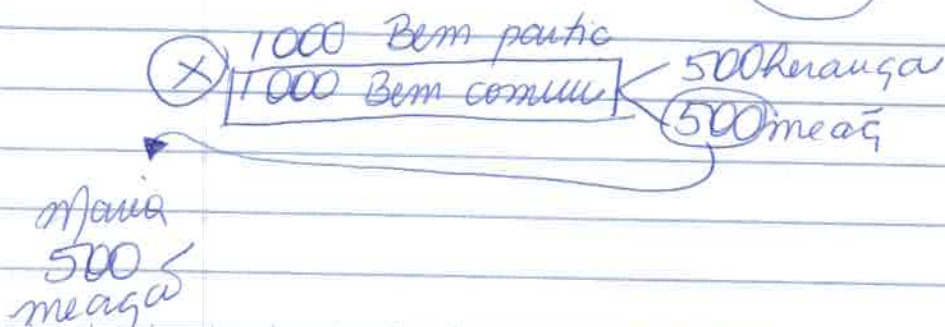 X 1000 Bem partic
1000 Bem comum 500 herança
500 meaç
Maria
500
meação